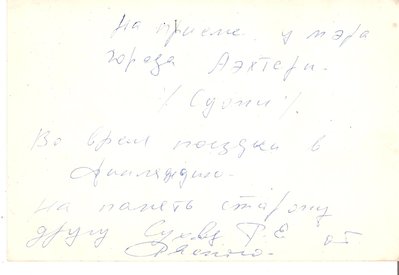 На приеме у мэра
города Аэхтери.
/ Суоми /.
Во время поездки в
Финляндию.
На память старому
другу Г. Е от